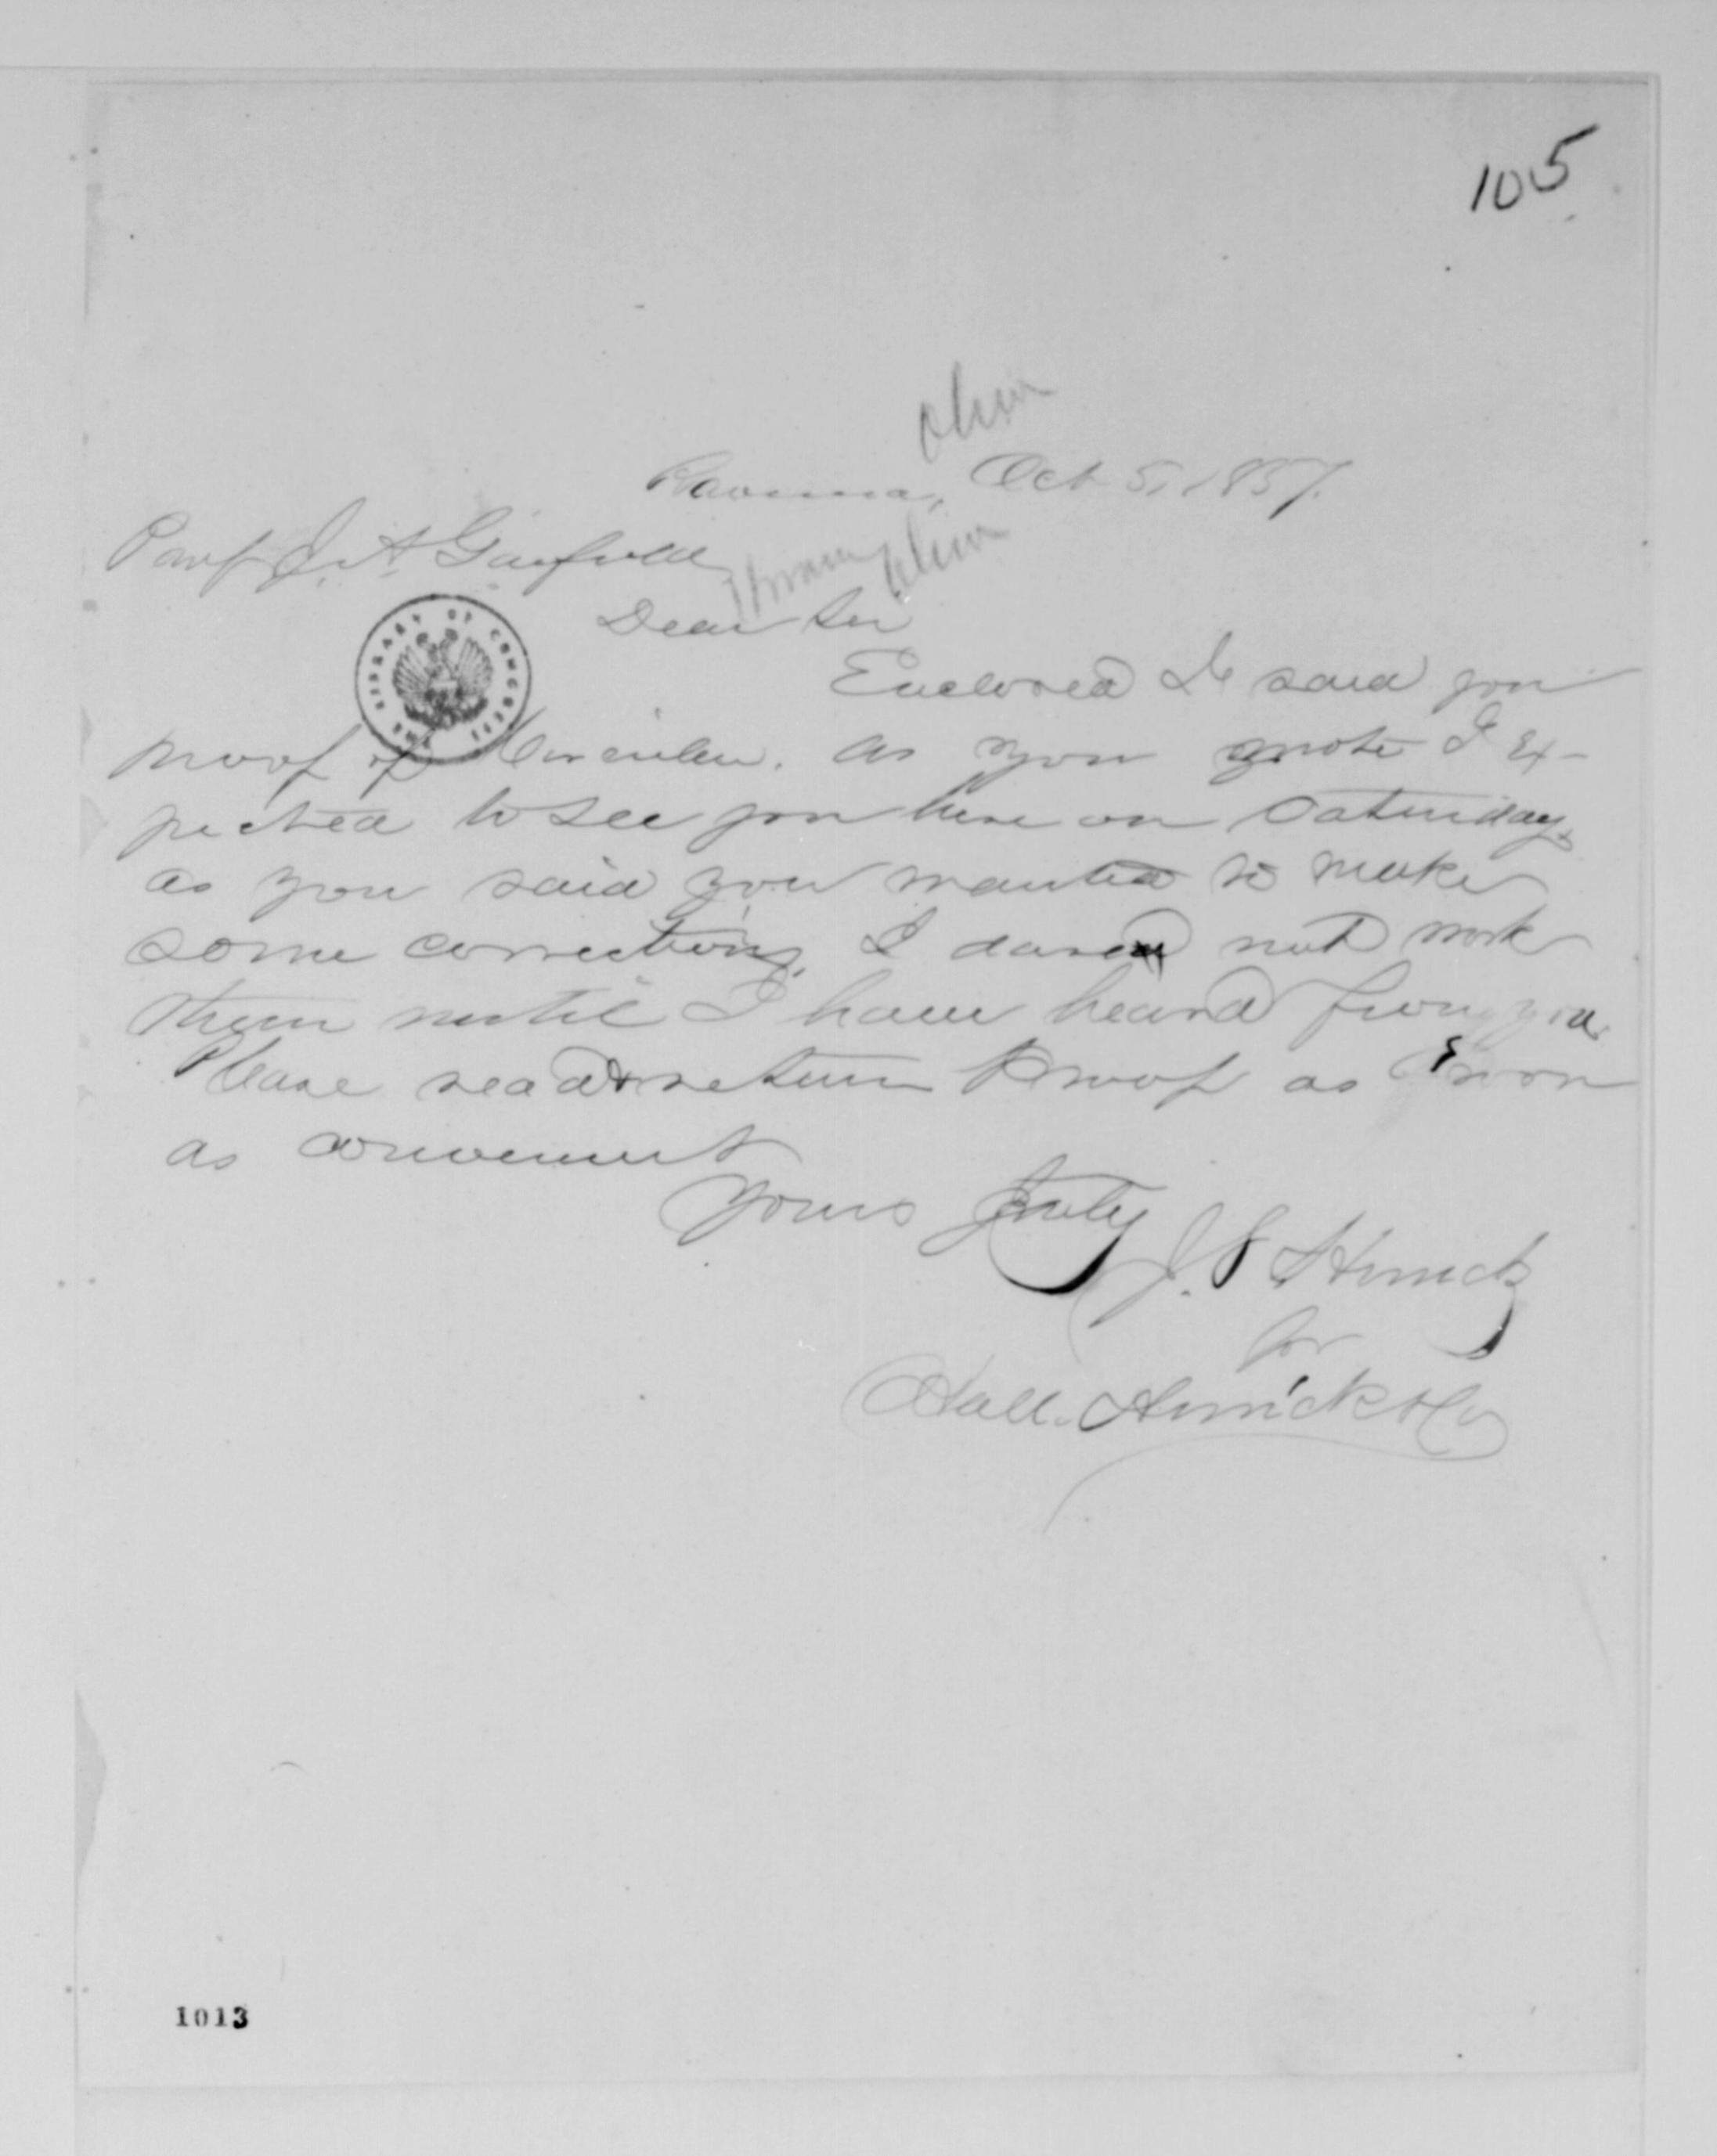 105
Ohio
Ravenna, Oct 5, 1857.
Prof J. A. Garfield
Hiram Ohio
Dear Sir
THE LIBRARY OF CONGRESS
Enclosed I send you
proof of Circular. as you wrote I ex-
pected to see you here on Saturday,
as you said you wanted to make
some corrections, I dared not work
them until I have heard from you.
Please read & return Proof as soon
as convenient
Yours truly
J. S. Herrick
for
Hall, Herrick & Co
1013